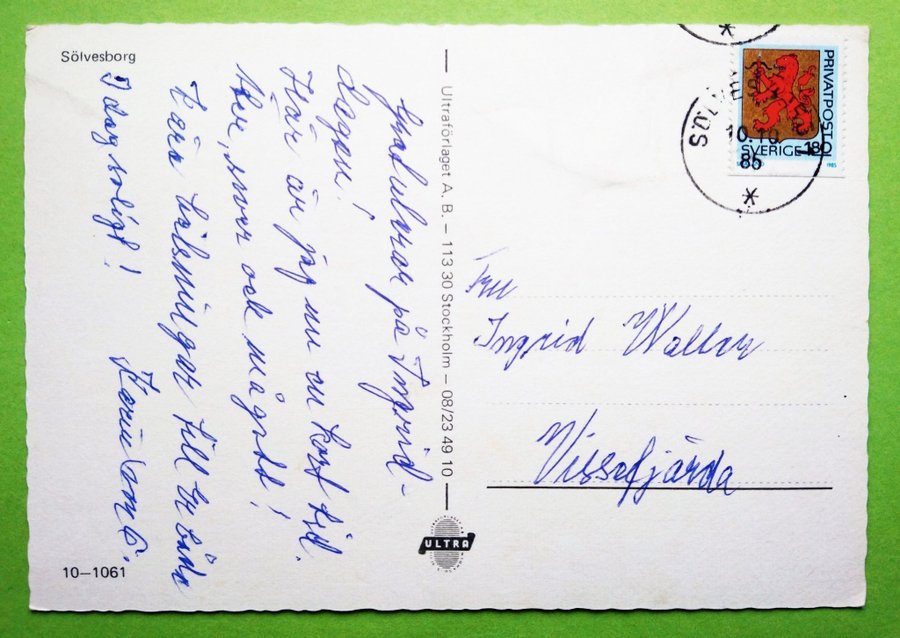 Sölvesborg
Gratulerar på Ingrid-
dagen!
Här är jag nu en kort tid.
Äter, sover och mår gott!
Kära hälsningar till Er båda
I dag soligt!
Karin
10–1061
Ultraförlaget A. B. – 113 30 Stockholm – 08/23 49 10
ULTRA
PRIVATPOST
SVERIGE 180
1985
SÖLVE
10.10
85
Fru
Ingrid Waller
Vissefjärda